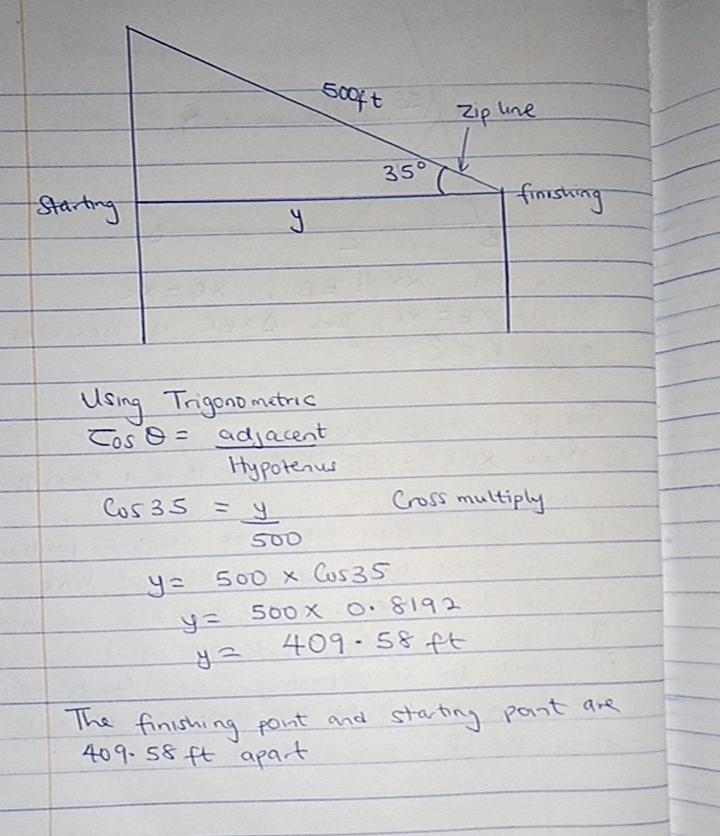 500ft
Zip line
35°
Starting
finishing
y
Using Trigonometric
Cos θ = adjacent
Hypotenus
Cos 35 = y
500
Cross multiply
y = 500 x Cos35
y = 500 x 0.8192
y = 409.58 ft
The finishing point and starting point are
409.58 ft apart